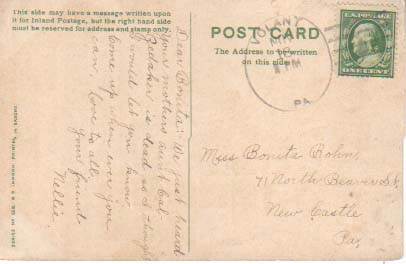 This side may have a message written upon
it for Inland Postage, but the right hand side
must be reserved for address and stamp only.
POST CARD
The Address to be written
on this side
VOLANT
PM
PA.
ONE CENT
Dear Bonita: We just heard
your mothers aunt
is dead so I thought
I would let you know
Come up when ever you
can love to all.
Your friend
Nellie.
Miss Bonita Rohn,
71 North Beaver St.
New Castle
Pa.